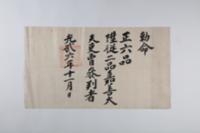 勅命
正六品
陞從二品嘉善大
夫吏曹參判者
光武六年十一月 日